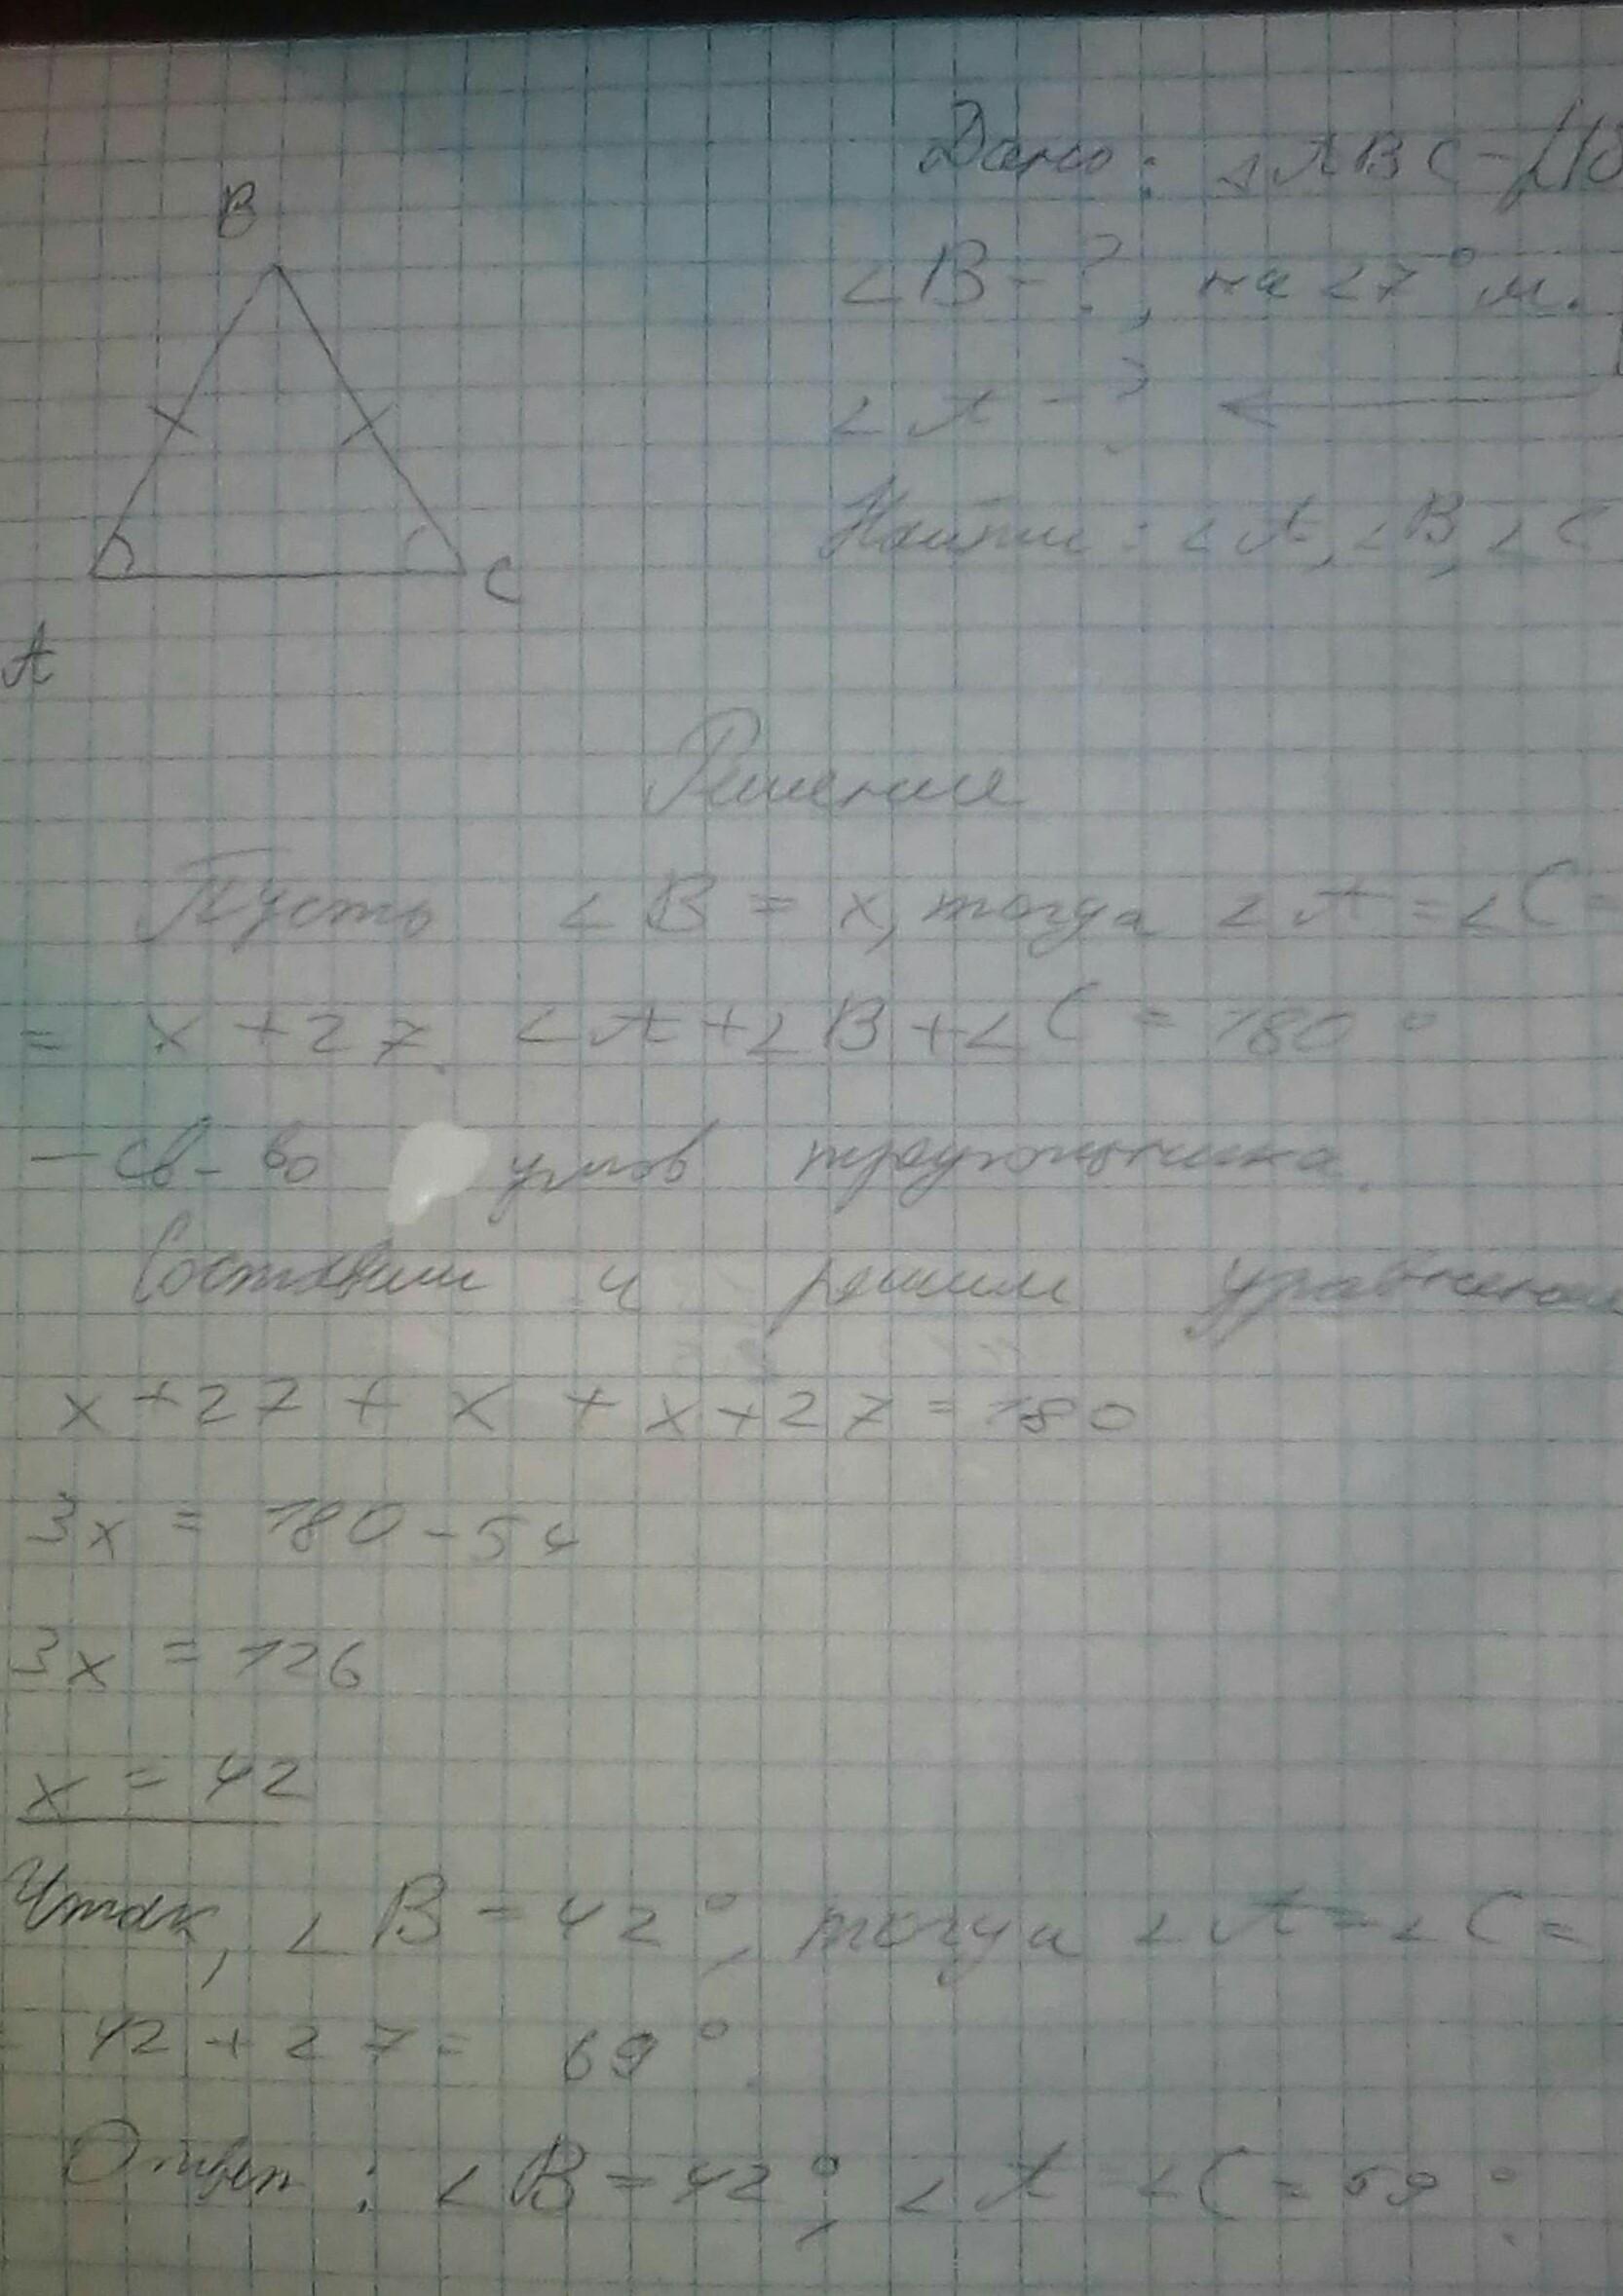 B
A
C
Дано: △ABC - р/б
∠B - ?, на 27° м.
∠A - ?
Найти: ∠A, ∠B, ∠C
Решение
Пусть ∠B = x, тогда ∠A = ∠C =
= x + 27. ∠A + ∠B + ∠C = 180°
— св-во углов треугольника.
Составим и решим уравнение
x + 27 + x + x + 27 = 180
3x = 180 - 54
3x = 126
x = 42
Итак, ∠B = 42°, тогда ∠A = ∠C =
= 42 + 27 = 69°.
Ответ: ∠B = 42°, ∠A = ∠C = 59°.